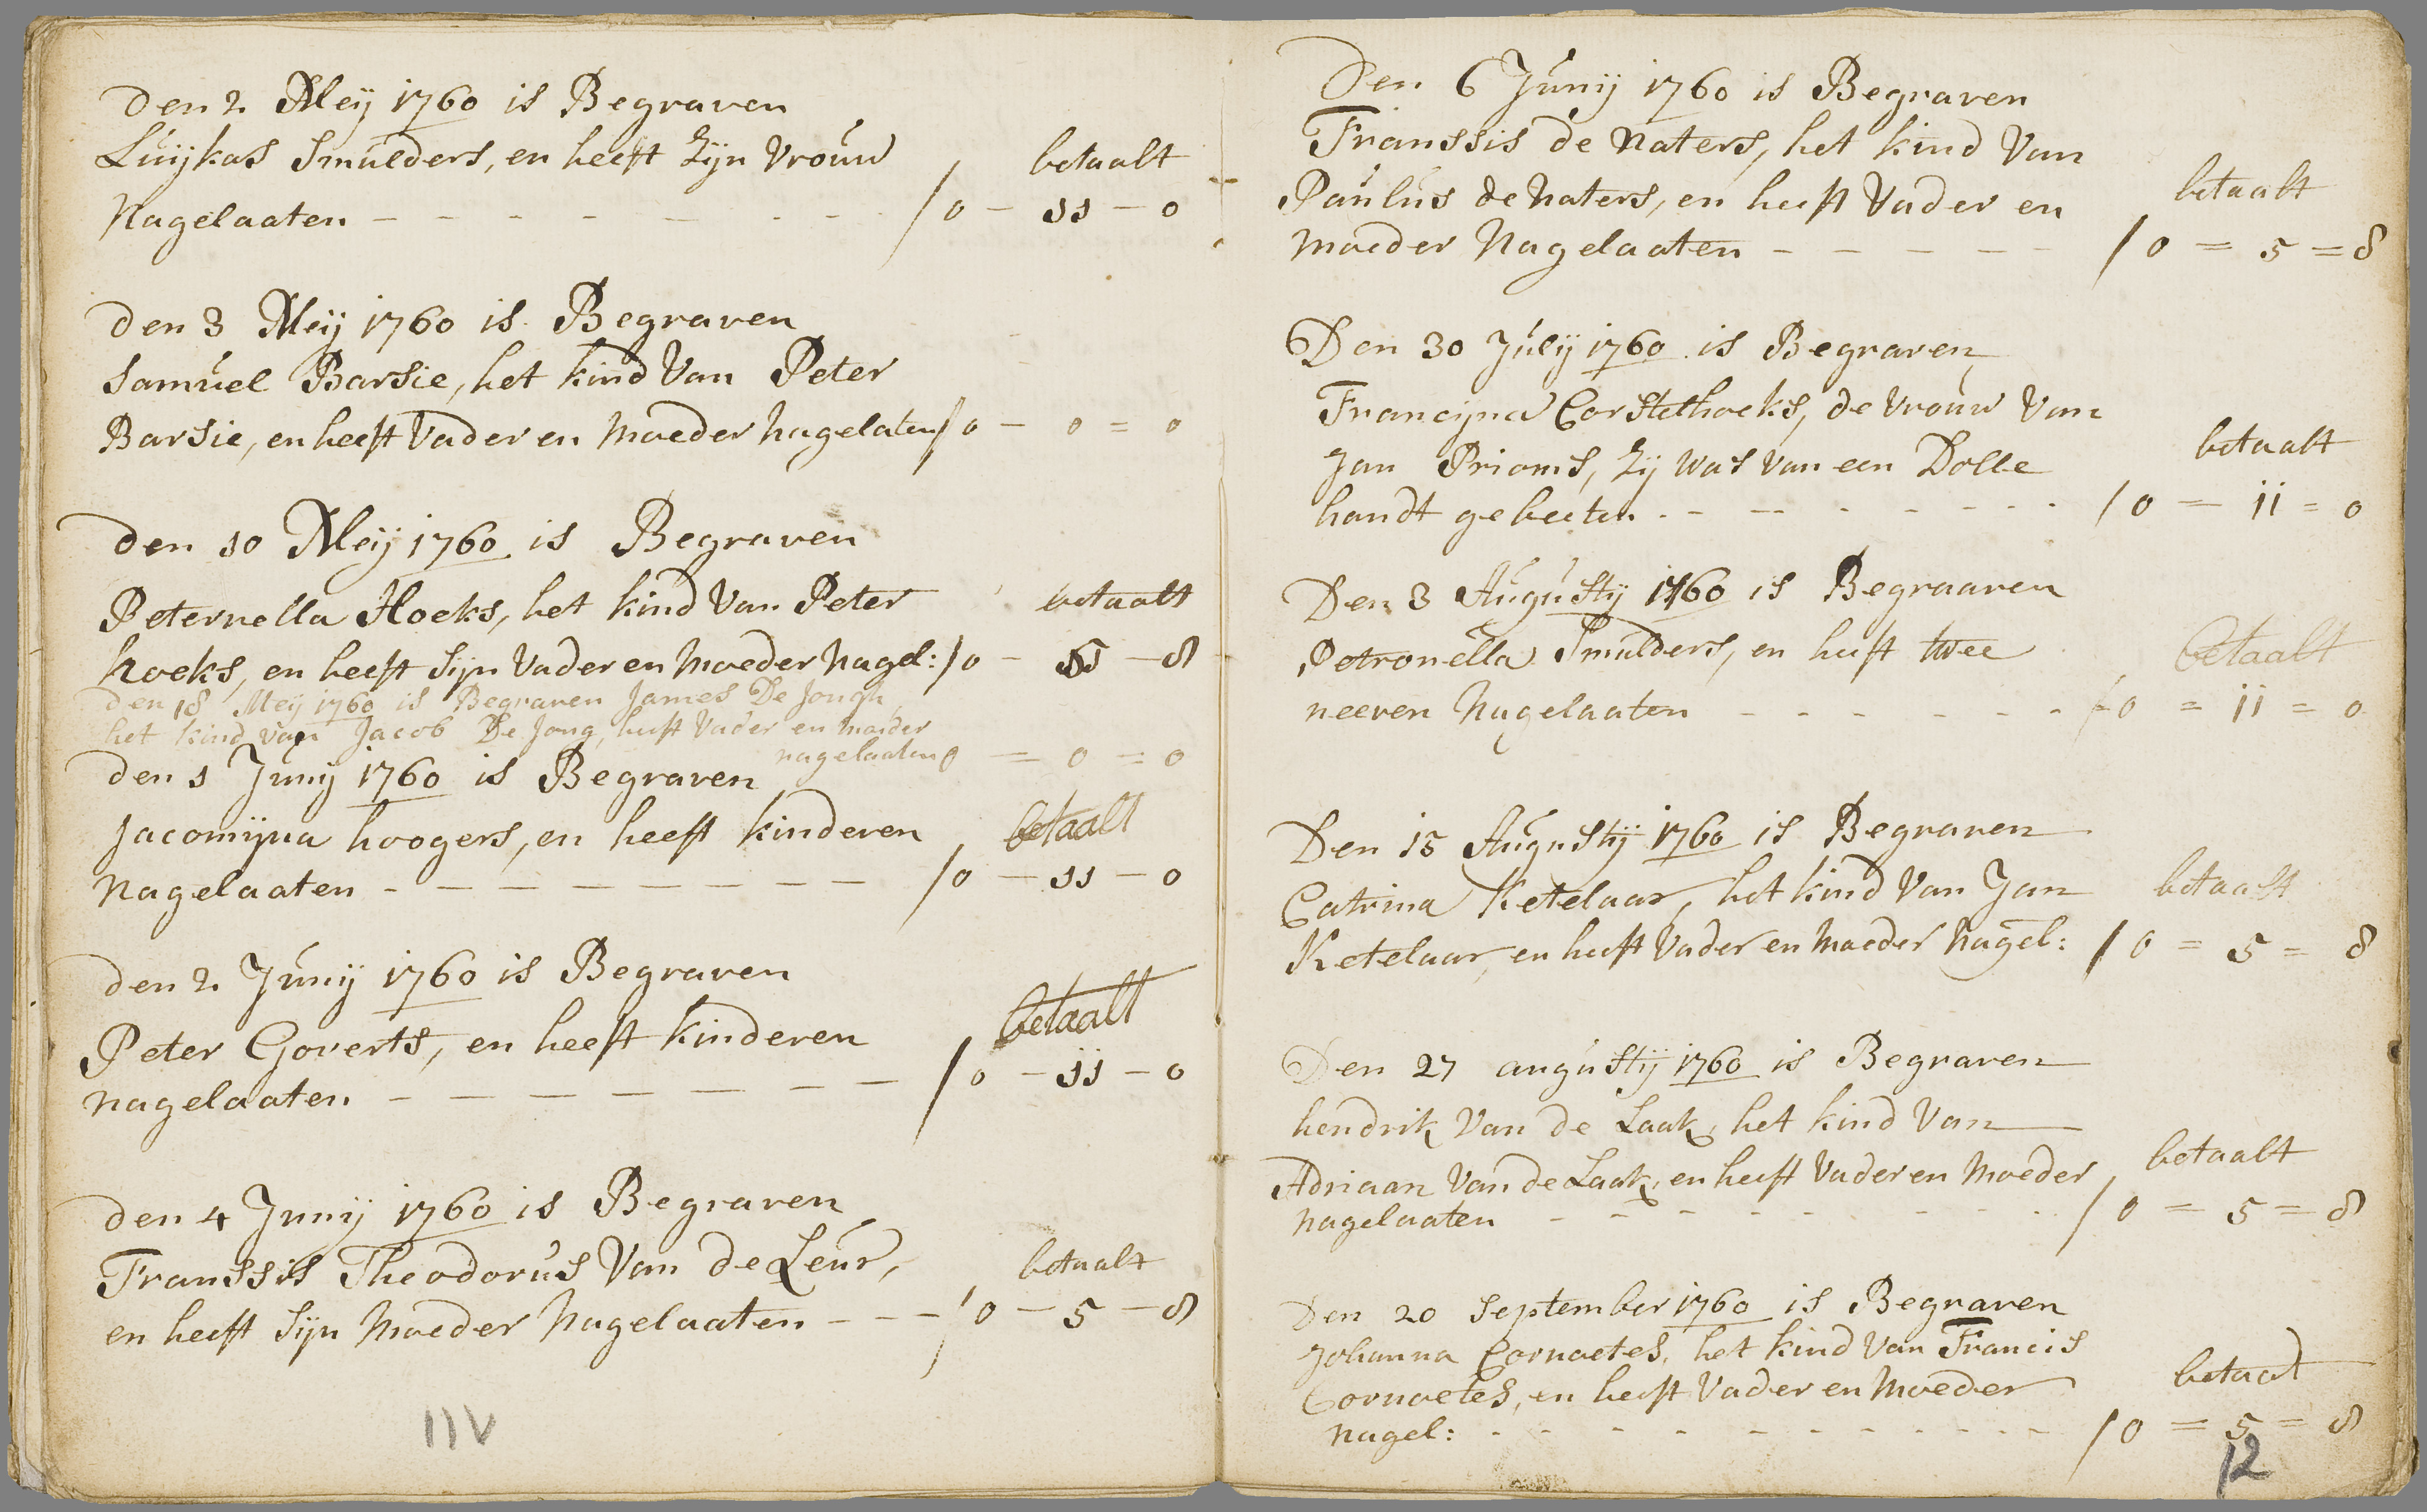 Den 2 Meij 1760 is Begraven
Luijkas Smulders, en heeft Zijn Vrouw
betaalt
Nagelaaten - - - - - - - - / 0 - 11 - 0
Den 3 Meij 1760 is Begraven
Samuel Barsie, het kind Van Peter
Barsie, en heeft Vader en Moeder nagelaten / 0 - 0 = 0
Den 10 Meij 1760 is Begraven
Peternella Hoeks, het kind Van Peter
betaalt
hoeks, en heeft Sijn Vader en Moeder Nagel: / 0 - 5 - 8
Den 18 Meij 1760 is Begraven James De Jongh,
het kind van Jacob De Jong, heeft Vader en moeder
nagelaaten 0 = 0 = 0
Den 1 Junij 1760 is Begraven
Jacomijna hoogers, en heeft kinderen
betaalt
Nagelaaten - - - - - - - - / 0 - 11 - 0
Den 2 Junij 1760 is Begraven
Peter Goverts, en heeft kinderen
betaalt
nagelaaten - - - - - - - / 0 - 11 - 0
Den 4 Junij 1760 is Begraven
Franssis Theodorus Van de Leur,
betaalt
en heeft Sijn Moeder Nagelaaten - - - / 0 - 5 - 8
11V
Den 6 Junij 1760 is Begraven
Franssis de Naters, het kind Van
Paulus de Naters, en heeft Vader en
betaalt
Moeder Nagelaaten - - - - - / 0 = 5 = 8
Den 30 Julij 1760 is Begraven
Francijna Corstethoeks, de Vrouw Van
Jan Prioms, Zij was van een Dolle
betaalt
handt gebeeten - - - - - - - / 0 = 11 = 0
Den 3 Augustij 1760 is Begraaven
Petronella Smulders, en heeft twee
betaalt
neeven Nagelaaten - - - - - - / 0 = 11 = 0
Den 15 Augustij 1760 is Begraven
Catrina Ketelaar, het kind Van Jan
betaalt
Ketelaar, en heeft Vader en Moeder Nagel: / 0 = 5 = 8
Den 27 augustij 1760 is Begraven
hendrik Van de Laak, het kind Van
Adriaan Van de Laak, en heeft Vader en Moeder
betaalt
Nagelaaten - - - - - - - - / 0 = 5 = 8
Den 20 September 1760 is Begraven
Johanna Cornoetes, het kind Van Francis
Cornoetes, en heeft Vader en Moeder
betaalt
Nagel: - - - - - - - - - / 0 = 5 = 8
12